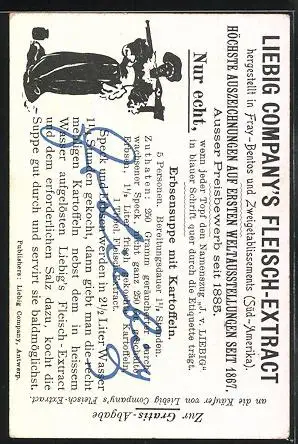 LIEBIG COMPANY'S FLEISCH-EXTRACT
hergestellt in Fray-Bentos und Zweigetablissements (Süd-Amerika).
HÖCHSTE AUSZEICHNUNGEN AUF ERSTEN WELTAUSSTELLUNGEN SEIT 1867.
Ausser Preisbewerb seit 1885.
Nur echt,
wenn jeder Topf den Namenszug „J. v. LIEBIG"
in blauer Schrift quer durch die Etiquette trägt.
Erbsensuppe mit Kartoffeln.
5 Personen. Bereitungsdauer 1½ Stunden.
Zuthaten: 250 Gramm geräucherter durch-
wachsener Speck
1½ Liter
Kartoffeln,
Fleisch-Extract.
Speck und Erbsen werden in 2½ Liter Wasser
1¼ Stunden gekocht, dann giebt man die recht
mehligen Kartoffeln nebst dem in heissem
Wasser aufgelösten Liebig's Fleisch-Extract
und dem erforderlichen Salz dazu, kocht die
Suppe gut durch und servirt sie baldmöglichst.
Publishers: Liebig Company, Antwerp.
Zur Gratis-Abgabe
an die Käufer von Liebig Company's Fleisch-Extract.